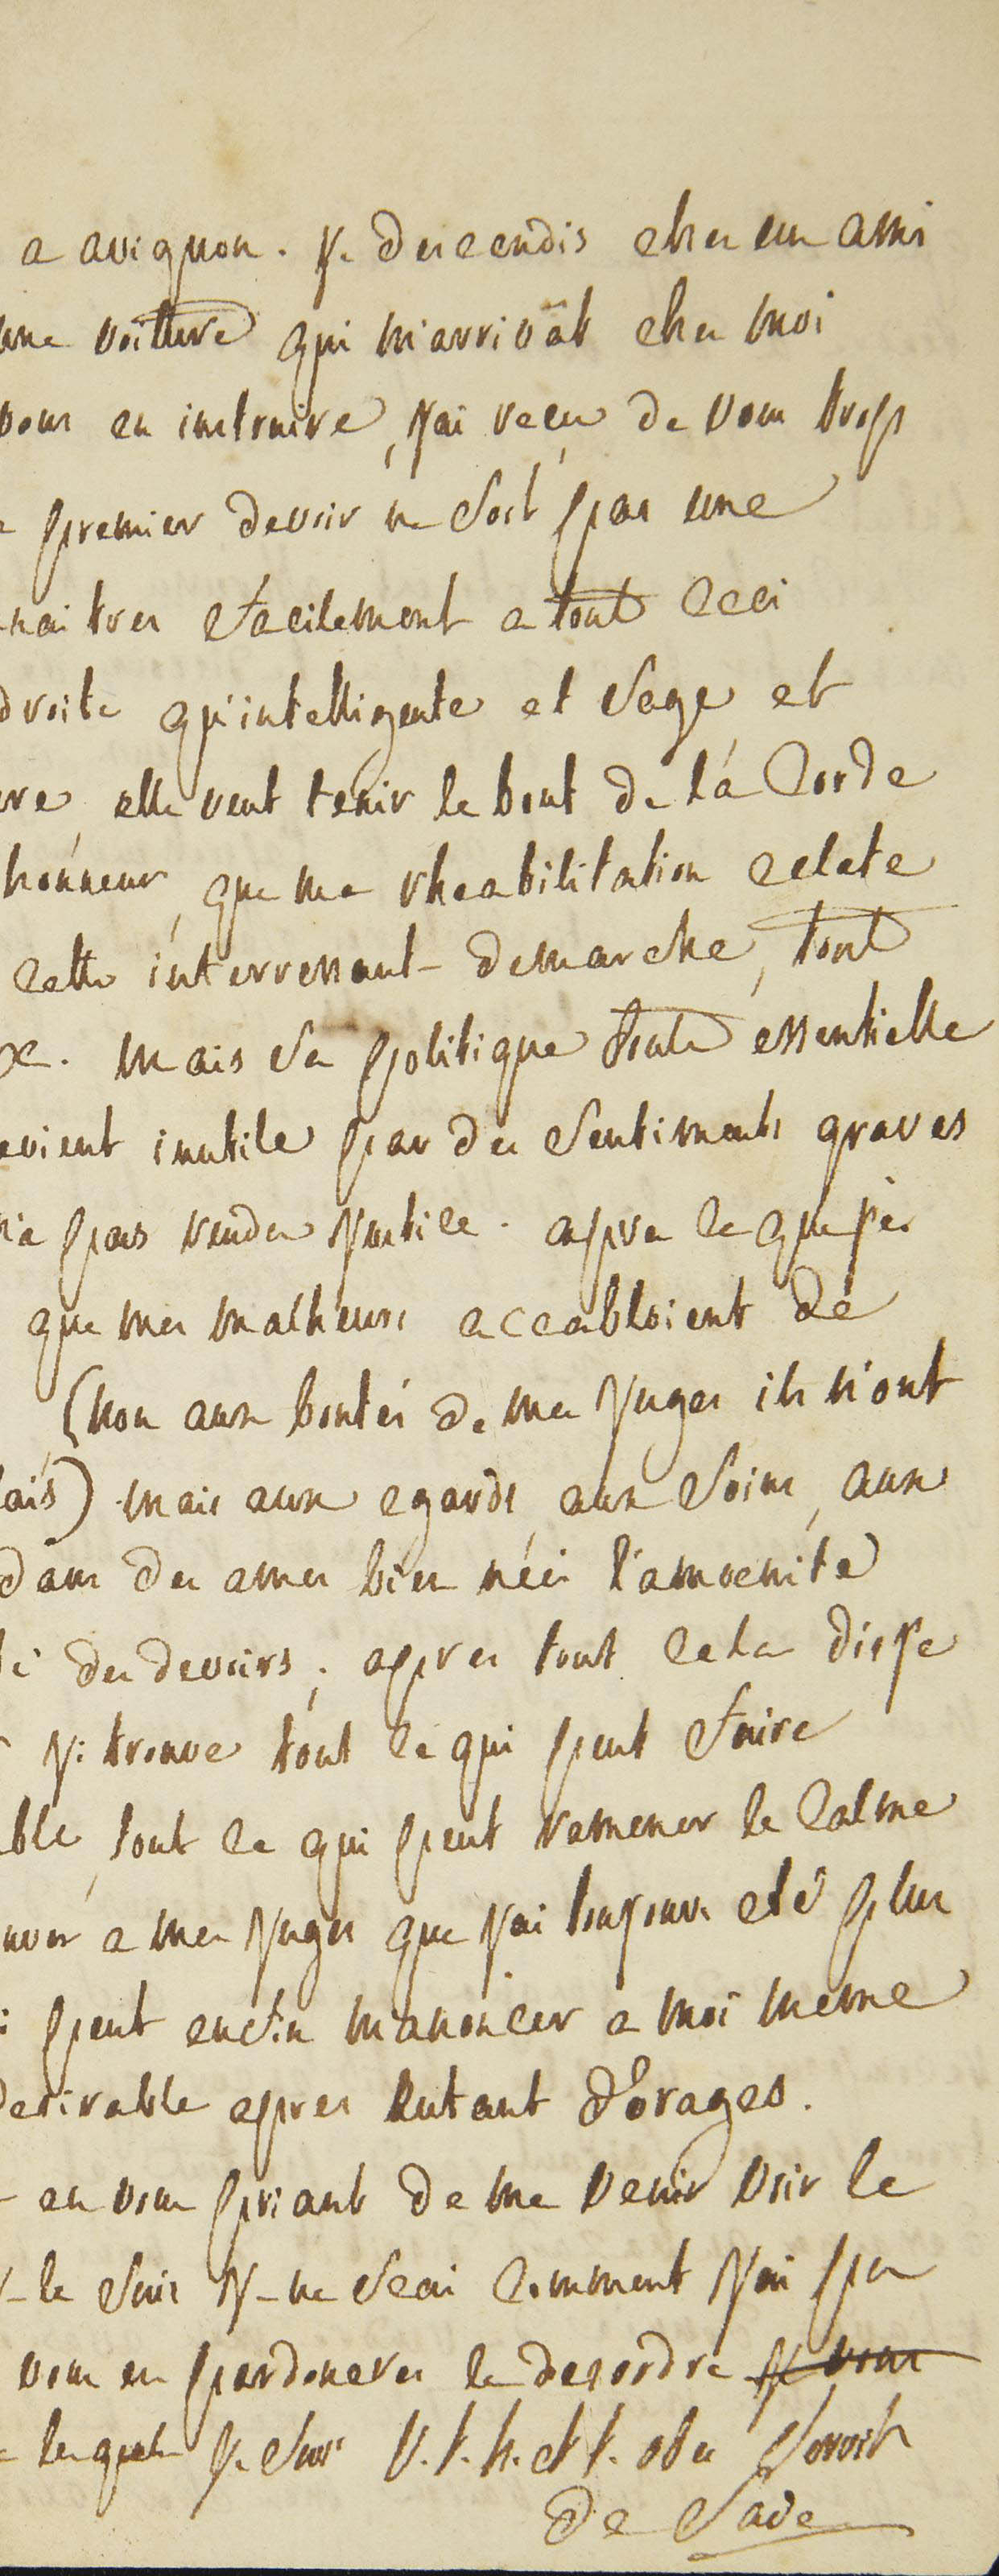 a avignon. je descendis ches un ami
une voiture qui m'arrivât ches moi
vous en instruire, j'ai reçu de vous trop
premier devoir ne soit pas une
naitres facilement a tout ceci
droite qu'intelligente et sage et
elle veut tenir le bout de la corde
honneur, que ma rheabilitation eclate
cette interressant demarche, tout
mais sa politique toute essentielle
evient inutile par des sentiments graves
pas rendu justice. apres ce que j'ai
que mes malheurs accabloient de
(non aux bontés de mes juges ils n'ont
ais) mais aux egards aux soins, aux
dans des ames bien nées l'amoenité
des devoirs; apres tout cela dis je
je trouve tout ce qui peut faire
ble, tout ce qui peut ramener le calme
uver a mes juges que j'ai toujours eté plus
peut enfin m'anoncer a moi meme
desirable apres autant d'orages.
en vous priant de me venir voir le
le suis je ne scai comment j'ai pu
vous en pardoneres le desordre je vous
lesquels je suis v. t. h. et t. obs servit
de Sade